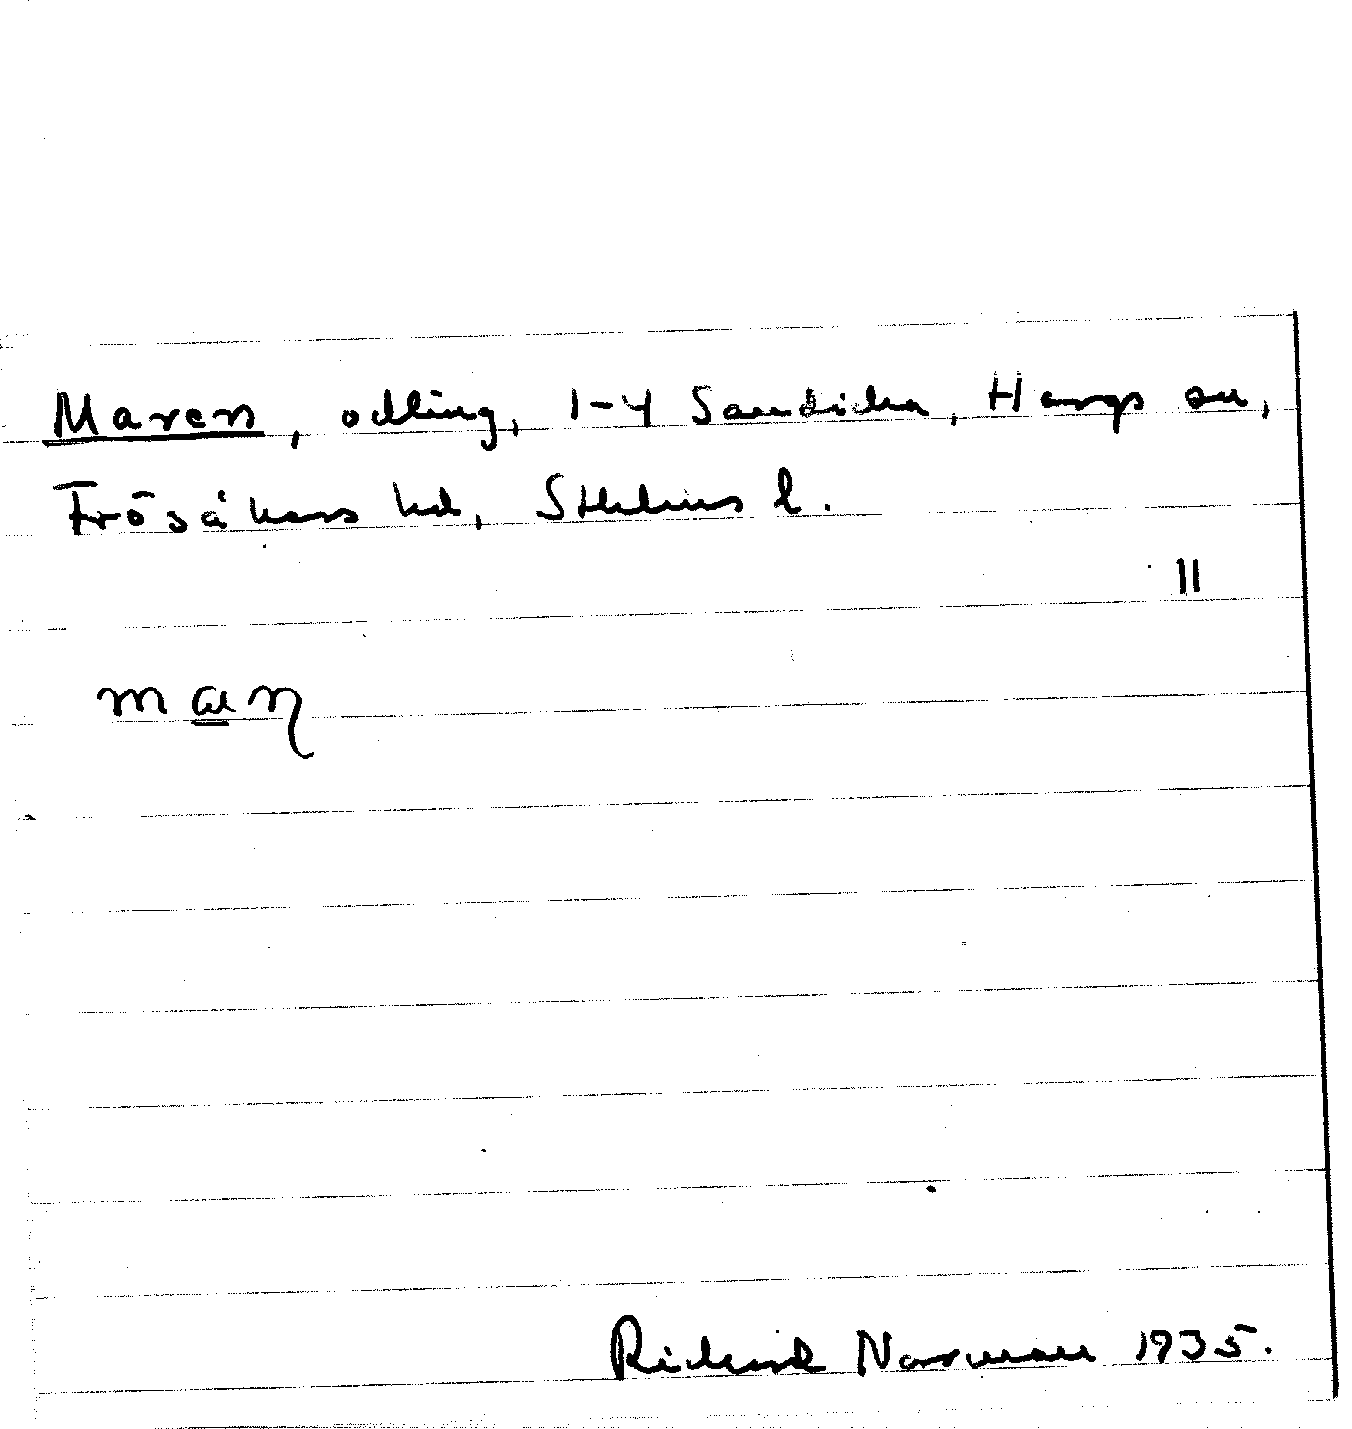 Maren, odling, 1-4 Sandika, Hargs sn,
Frösåkers hd, Sthlms l.
11
man
Rickard Norman 1935.